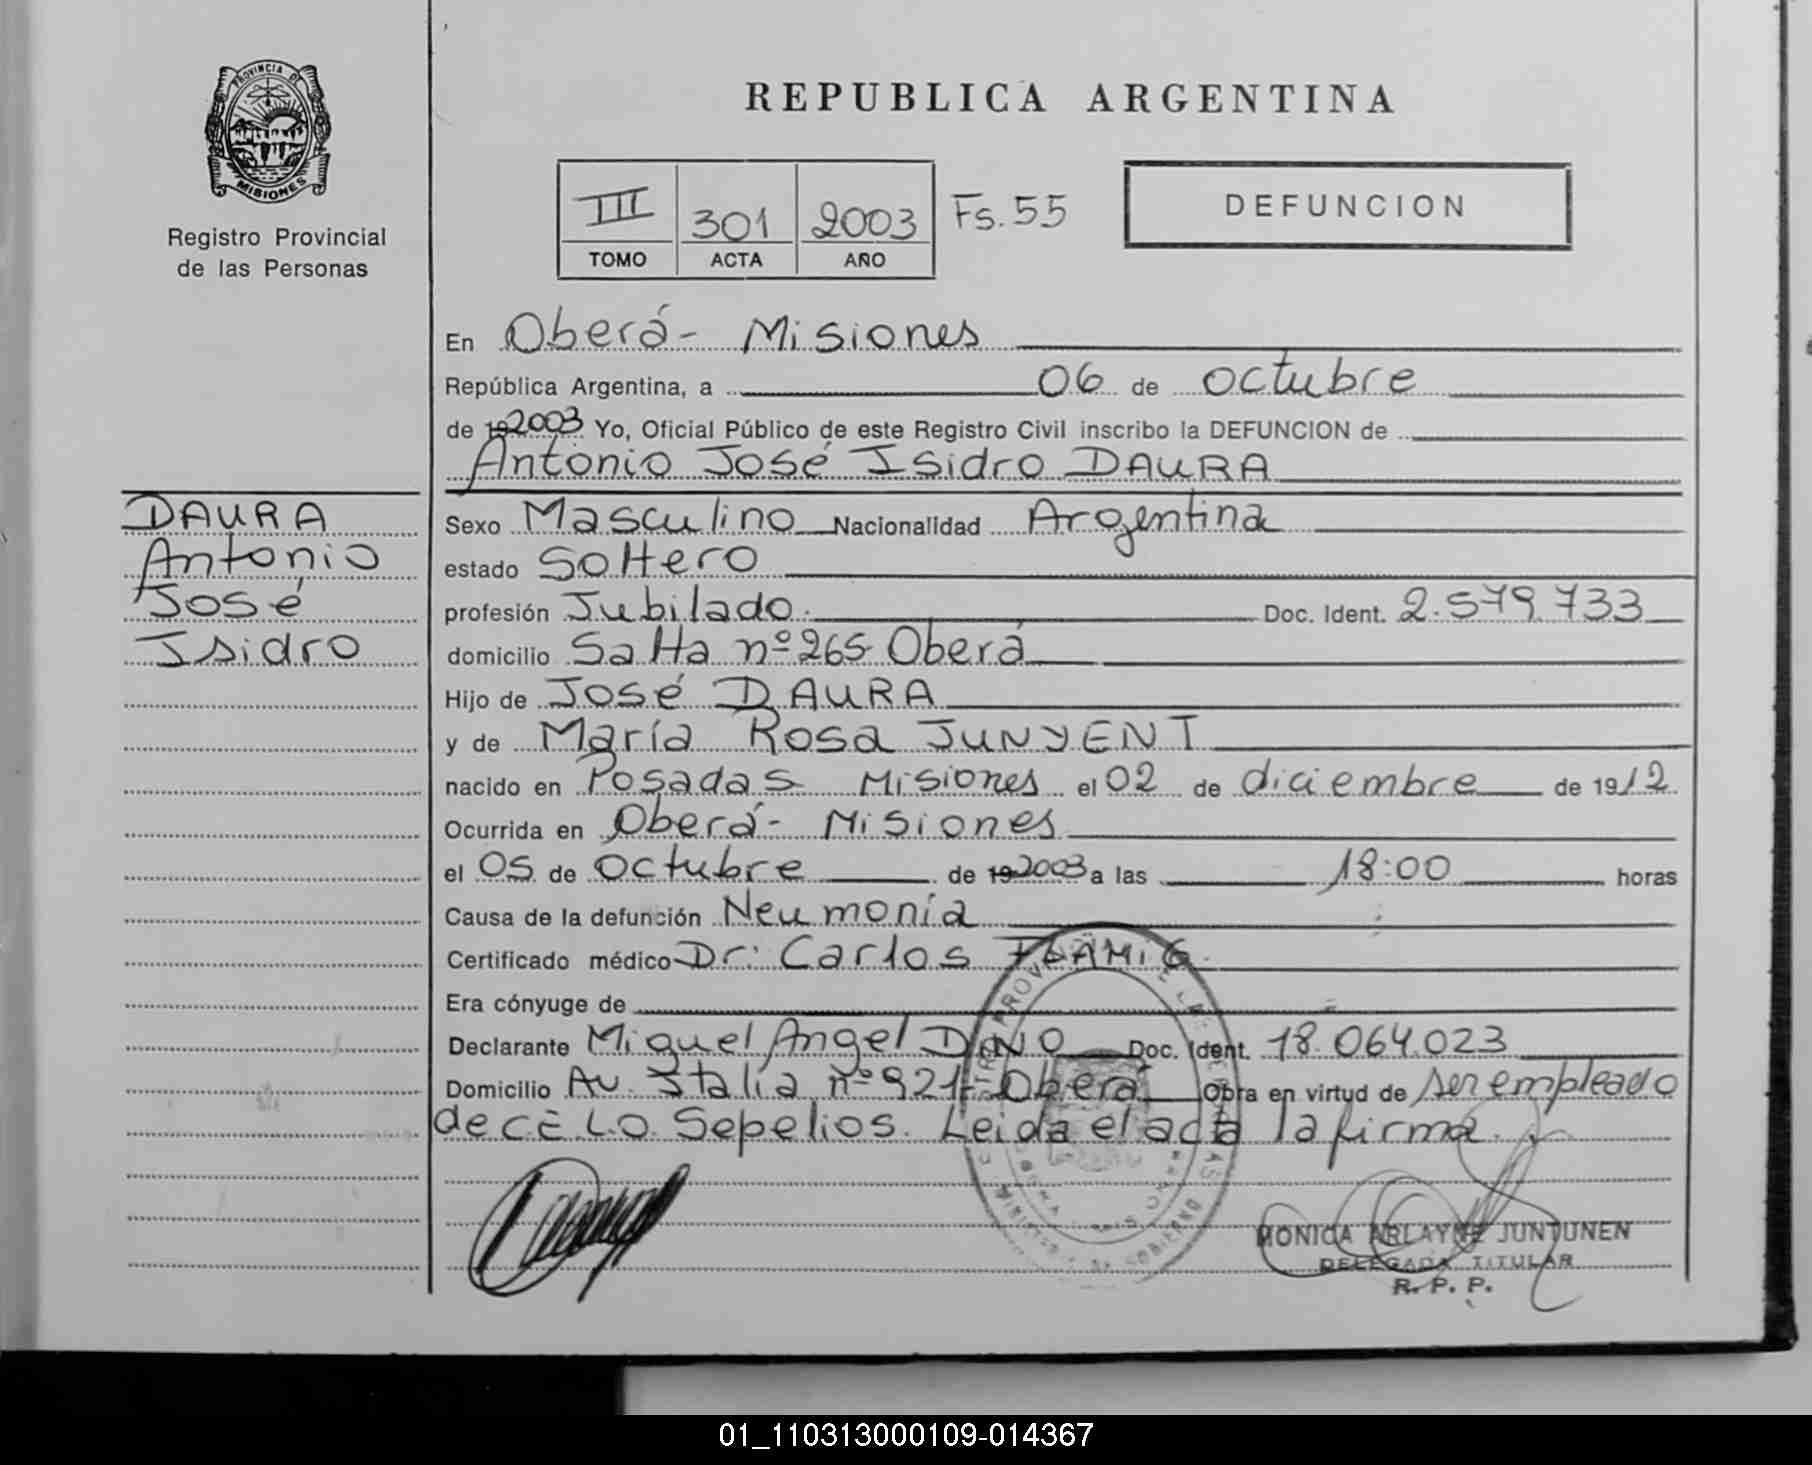 PROVINCIA DE
MISIONES
Registro Provincial
de las Personas
REPUBLICA ARGENTINA
III 301 2003 Fs. 55
TOMO ACTA AÑO
DEFUNCION
En Oberá - Misiones
República Argentina, a 06 de octubre
de 192003 Yo, Oficial Público de este Registro Civil inscribo la DEFUNCION de
Antonio José Isidro DAURA
DAURA
Antonio
José
Isidro
Sexo Masculino Nacionalidad Argentina
estado Soltero
profesión Jubilado. Doc. Ident. 2.579.733
domicilio Salta nº 265 Oberá
Hijo de José DAURA
y de María Rosa JUNYENT
nacido en Posadas Misiones el 02 de diciembre de 1912
Ocurrida en Oberá - Misiones
el 05 de Octubre de 192003 a las 18:00 horas
Causa de la defunción Neumonía
Certificado médico Dr: Carlos FLAMIG.
Era cónyuge de
Declarante Miguel Angel Doc. Ident. 18.064.023
Domicilio Av. Italia nº 921- Oberá Obra en virtud de ser empleado
de C.E.L.O. Sepelios. Leída el acta la firma.
MONICA ARLAYNE JUNTUNEN
DELEGADA TITULAR
R. P. P.
01_110313000109-014367